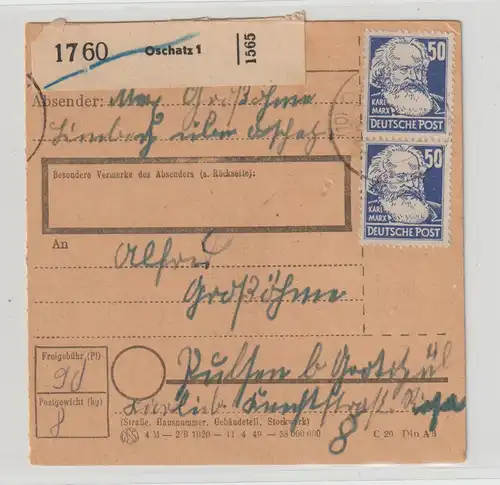 1760 Oschatz 1 1565
50
KARL MARX
DEUTSCHE POST
50
KARL MARX
DEUTSCHE POST
Absender: Max Großöhme
Limbach über Oschatz
Besondere Vermerke des Absenders (s. Rückseite):
An
Alfred
Großöhme
Freigebühr (Pf)
Pulsen b
Postgewicht (kg)
8
(Straße, Hausnummer, Gebäudeteil, Stockwerk)
8
4 M — 2/B 1020 — 11 4 49 — 58 000 000 C 20 Din A 5